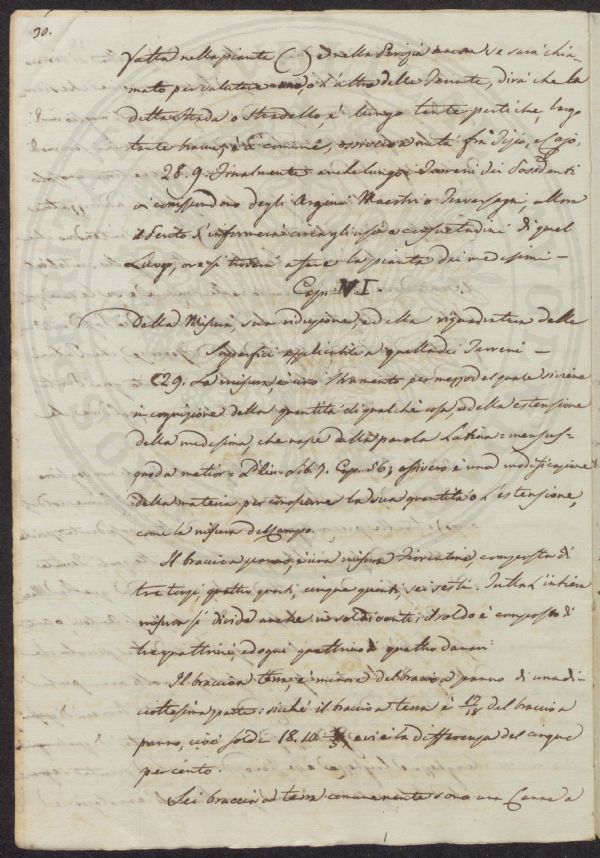 30.
fatta nella pianta ( ) e nella Perizia ancora se sarà chia-
mato per valutare uno, o l'altro delle Tenute, dirà che la
detta Strada o Stradello, è lungo tante pertiche, largo
tante braccia, è comune, fra Tizio, e Cajo,
28. 9. Finalmente anche lungo i Terreni dei Possidenti
vi corrispondono degli Argini Maestri o Traversagni, allora
il Perito s'informerà circa gli usi e consuetudini di quel
Luogo, ove si troverà a fare la pianta dei medesimi -
Cap. VI.
Della Misura, sua riduzione, ed ella riquadratura delle
Superfici applicabile a quella dei Terreni -
29. La misura, è uno stramento per mezzo del quale si viene
in cognizione della quantità di qualche cosa, e della estensione
della medesima, che nasce dalla parola Latina = mensus =
quod a metior = Plin. Lib. 7. Cap. 56, ossivero è una modificazione
della materia, per conoscerne la sua quantità o l'estensione,
come la misura del Campo.
Il braccio a panno, è una misura Fiorentina, composta di
tre terzi, quattro quarti, cinque quinti, sei sesti. Tutta l'intiera
misura si divide anche in soldi venti: il soldo è composto di
tre quattrini, ed ogni quattrino di quattro danari:
Il braccio a terra, è minore del braccio a panno di una di-
ciottesima parte: sicché il braccio a terra è 17/18 del braccio a
panno, cioè soldi 18. 10 evvi è la differenza del cinque
per cento.
Sei braccia a terra comunemente sono una Canna a